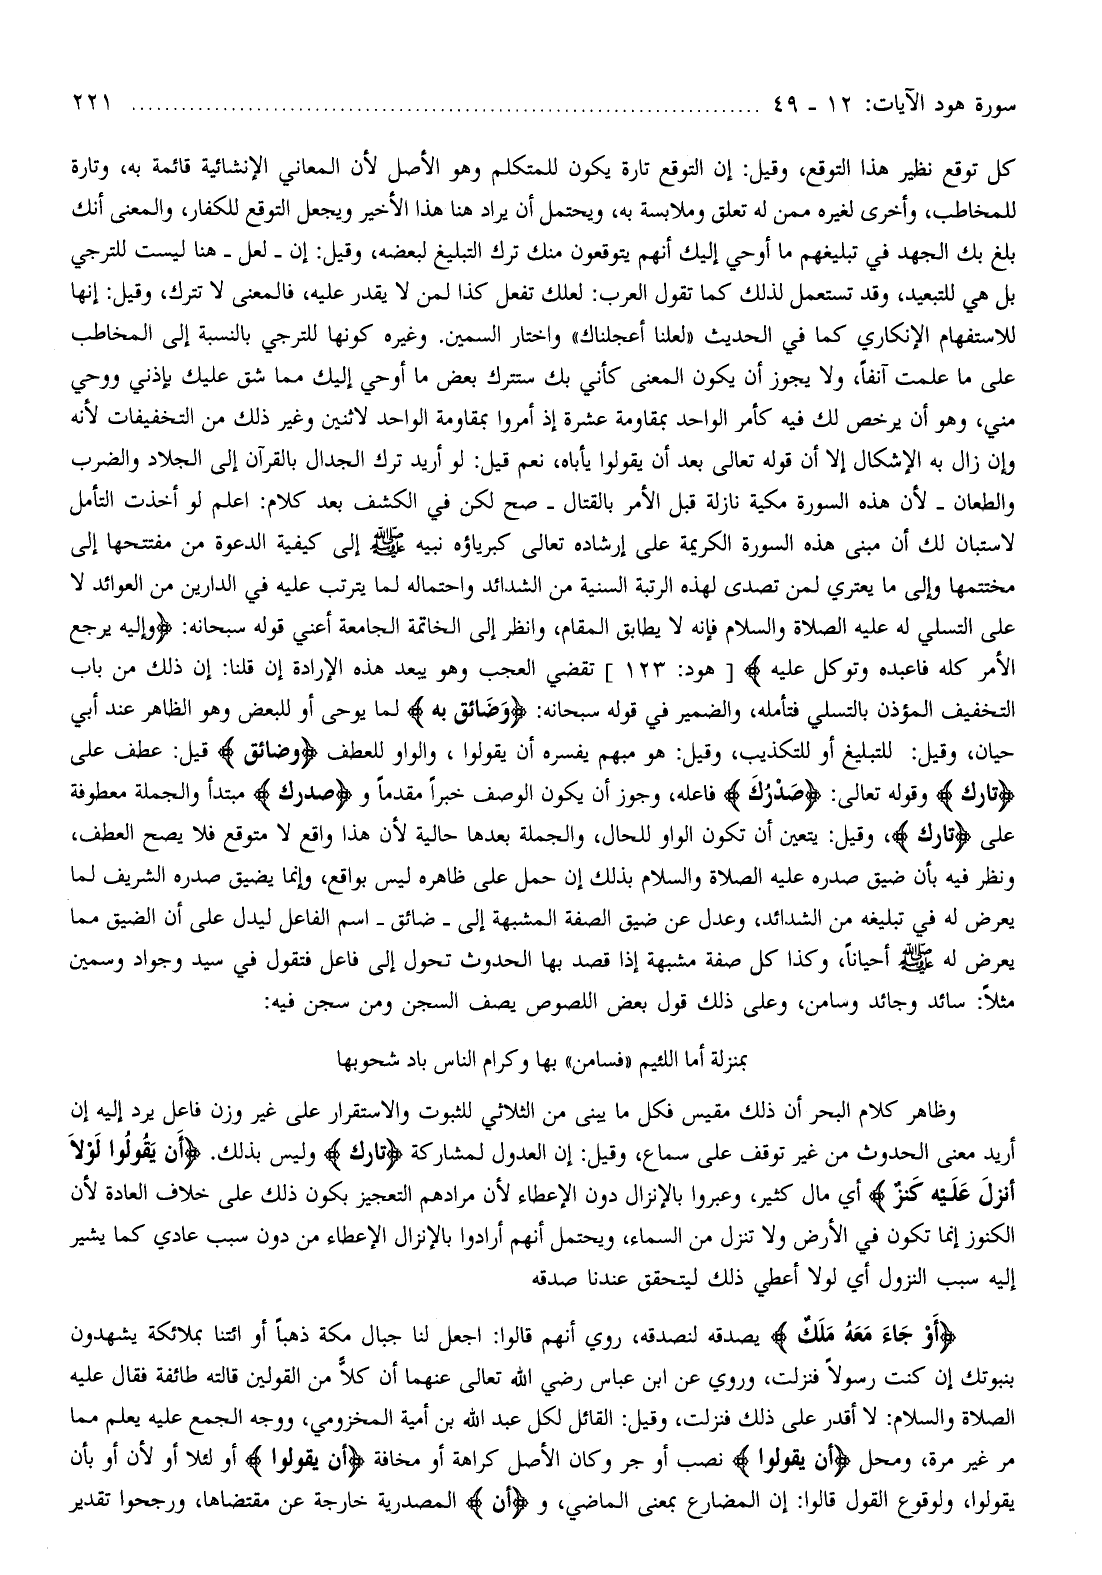 سورة هود الآيات: ١٢ - ٤٩ ........................................................................ ٢٢١
كل توقع نظير هذا التوقع، وقيل: إن التوقع تارة يكون للمتكلم وهو الأصل لأن المعاني الإنشائية قائمة به، وتارة
للمخاطب، وأخرى لغيره ممن له تعلق وملابسة به، ويحتمل أن يراد هنا هذا الأخير ويجعل التوقع للكفار، والمعنى أنك
بلغ بك الجهد في تبليغهم ما أوحي إليك أنهم يتوقعون منك ترك التبليغ لبعضه، وقيل: إن ـ لعل ـ هنا ليست للترجي
بل هي للتبعيد، وقد تستعمل لذلك كما تقول العرب: لعلك تفعل كذا لمن لا يقدر عليه، فالمعنى لا تترك، وقيل: إنها
للاستفهام الإنكاري كما في الحديث «لعلنا أعجلناك» واختار السمين. وغيره كونها للترجي بالنسبة إلى المخاطب
على ما علمت آنفاً، ولا يجوز أن يكون المعنى كأني بك ستترك بعض ما أوحي إليك مما شق عليك بإذني ووحي
مني، وهو أن يرخص لك فيه كأمر الواحد بمقاومة عشرة إذ أمروا بمقاومة الواحد لاثنين وغير ذلك من التخفيفات لأنه
وإن زال به الإشكال إلا أن قوله تعالى بعد أن يقولوا يأباه، نعم قيل: لو أريد ترك الجدال بالقرآن إلى الجلاد والضرب
والطعان ـ لأن هذه السورة مكية نازلة قبل الأمر بالقتال ـ صح لكن في الكشف بعد كلام: اعلم لو أخذت التأمل
لاستبان لك أن مبنى هذه السورة الكريمة على إرشاده تعالى كبرياؤه نبيه ﷺ إلى كيفية الدعوة من مفتتحها إلى
مختتمها وإلى ما يعتري لمن تصدى لهذه الرتبة السنية من الشدائد واحتماله لما يترتب عليه في الدارين من العوائد لا
على التسلي له عليه الصلاة والسلام فإنه لا يطابق المقام، وانظر إلى الخاتمة الجامعة أعني قوله سبحانه: ﴿وإليه يرجع
الأمر كله فاعبده وتوكل عليه﴾ [ هود: ١٢٣ ] تقضي العجب وهو يبعد هذه الإرادة إن قلنا: إن ذلك من باب
التخفيف المؤذن بالتسلي فتأمله، والضمير في قوله سبحانه: ﴿وَضَائق به﴾ لما يوحى أو للبعض وهو الظاهر عند أبي
حيان، وقيل: للتبليغ أو للتكذيب، وقيل: هو مبهم يفسره أن يقولوا ، والواو للعطف ﴿وضائق﴾ قيل: عطف على
﴿تارك﴾ وقوله تعالى: ﴿صَدْرُكَ﴾ فاعله، وجوز أن يكون الوصف خبراً مقدماً و ﴿صدرك﴾ مبتدأ والجملة معطوفة
على ﴿تارك﴾، وقيل: يتعين أن تكون الواو للحال، والجملة بعدها حالية لأن هذا واقع لا متوقع فلا يصح العطف،
ونظر فيه بأن ضيق صدره عليه الصلاة والسلام بذلك إن حمل على ظاهره ليس بواقع، وإنما يضيق صدره الشريف لما
يعرض له في تبليغه من الشدائد، وعدل عن ضيق الصفة المشبهة إلى ـ ضائق ـ اسم الفاعل ليدل على أن الضيق مما
يعرض له ﷺ أحياناً، وكذا كل صفة مشبهة إذا قصد بها الحدوث تحول إلى فاعل فتقول في سيد وجواد وسمين
مثلاً: سائد وجائد وسامن، وعلى ذلك قول بعض اللصوص يصف السجن ومن سجن فيه:
بمنزلة أما اللئيم «فسامن» بها وكرام الناس باد شحوبها
وظاهر كلام البحر أن ذلك مقيس فكل ما يبنى من الثلاثي للثبوت والاستقرار على غير وزن فاعل يرد إليه إن
أريد معنى الحدوث من غير توقف على سماع، وقيل: إن العدول لمشاركة ﴿تارك﴾ وليس بذلك. ﴿أَن يَقُولُوا لَوْلاَ
أنزلَ عَلَيْه كَنزٌ﴾ أي مال كثير، وعبروا بالإنزال دون الإعطاء لأن مرادهم التعجيز بكون ذلك على خلاف العادة لأن
الكنوز إنما تكون في الأرض ولا تنزل من السماء، ويحتمل أنهم أرادوا بالإنزال الإعطاء من دون سبب عادي كما يشير
إليه سبب النزول أي لولا أعطي ذلك ليتحقق عندنا صدقه
﴿أَوْ جَاءَ مَعَهُ مَلَكٌ﴾ يصدقه لنصدقه، روي أنهم قالوا: اجعل لنا جبال مكة ذهباً أو ائتنا بملائكة يشهدون
بنبوتك إن كنت رسولاً فنزلت، وروي عن ابن عباس رضي الله تعالى عنهما أن كلاًّ من القولين قالته طائفة فقال عليه
الصلاة والسلام: لا أقدر على ذلك فنزلت، وقيل: القائل لكل عبد الله بن أمية المخزومي، ووجه الجمع عليه يعلم مما
مر غير مرة، ومحل ﴿أن يقولوا﴾ نصب أو جر وكان الأصل كراهة أو مخافة ﴿أن يقولوا﴾ أو لئلا أو لأن أو بأن
يقولوا، ولوقوع القول قالوا: إن المضارع بمعنى الماضي، و ﴿أن﴾ المصدرية خارجة عن مقتضاها، ورجحوا تقدير